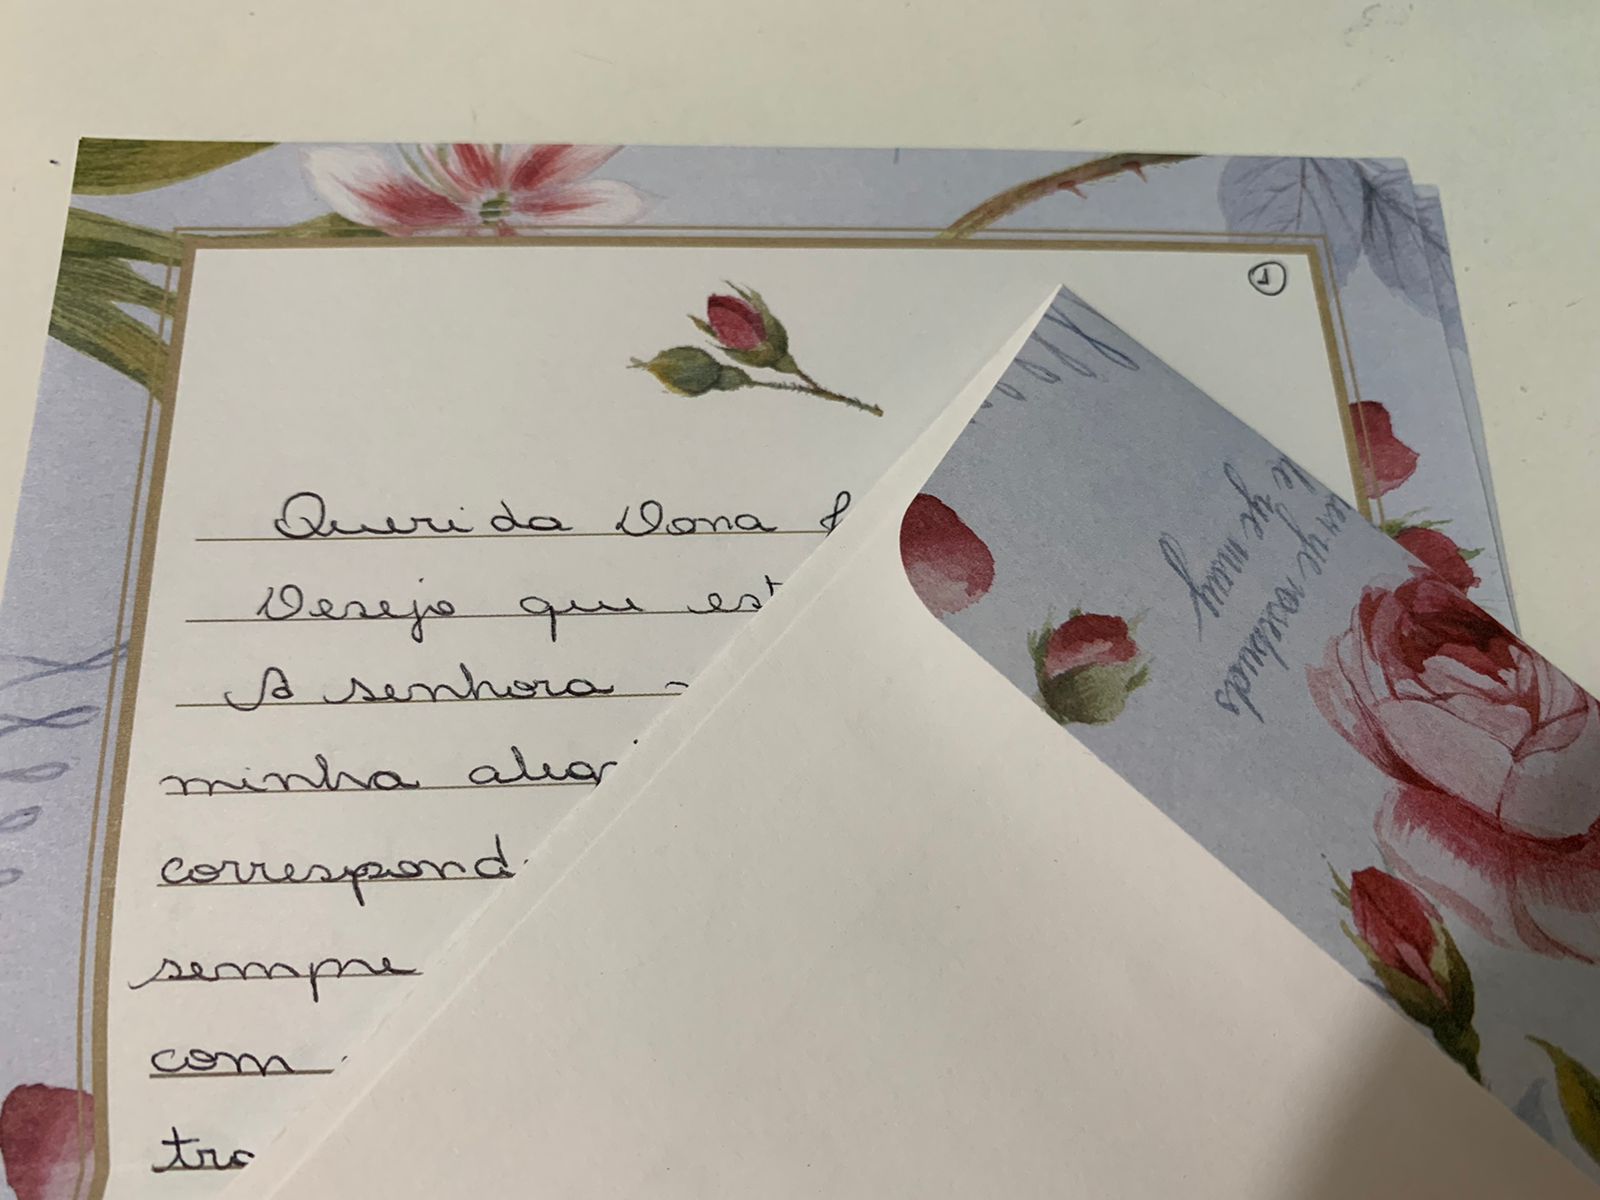 1
Querida Dona
Desejo que est
A senhora
minha aleg
correspond
sempre
com
tra
ye rosebuds
ye may